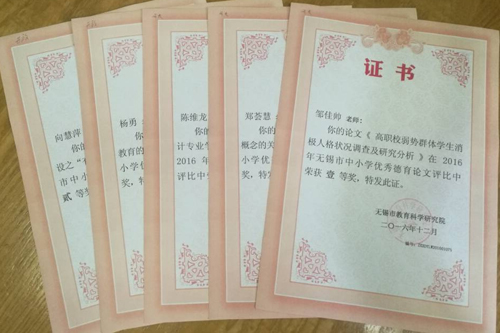 向慧萍
设之“
市中小
贰 等奖
杨勇
你的
教育的
小学优
奖，特
陈维龙
你的
计专业学
2016
年
评比中
奖，
郑荟慧
你
概念的关
小学优
奖，特
证书
邹佳帅 老师：
你的论文《 高职校弱势群体学生消
极人格状况调查及研究分析 》在 2016
年无锡市中小学优秀德育论文评比中
荣获 壹 等奖，特发此证。
无锡市教育科学研究院
二〇一六年十二月
编号：